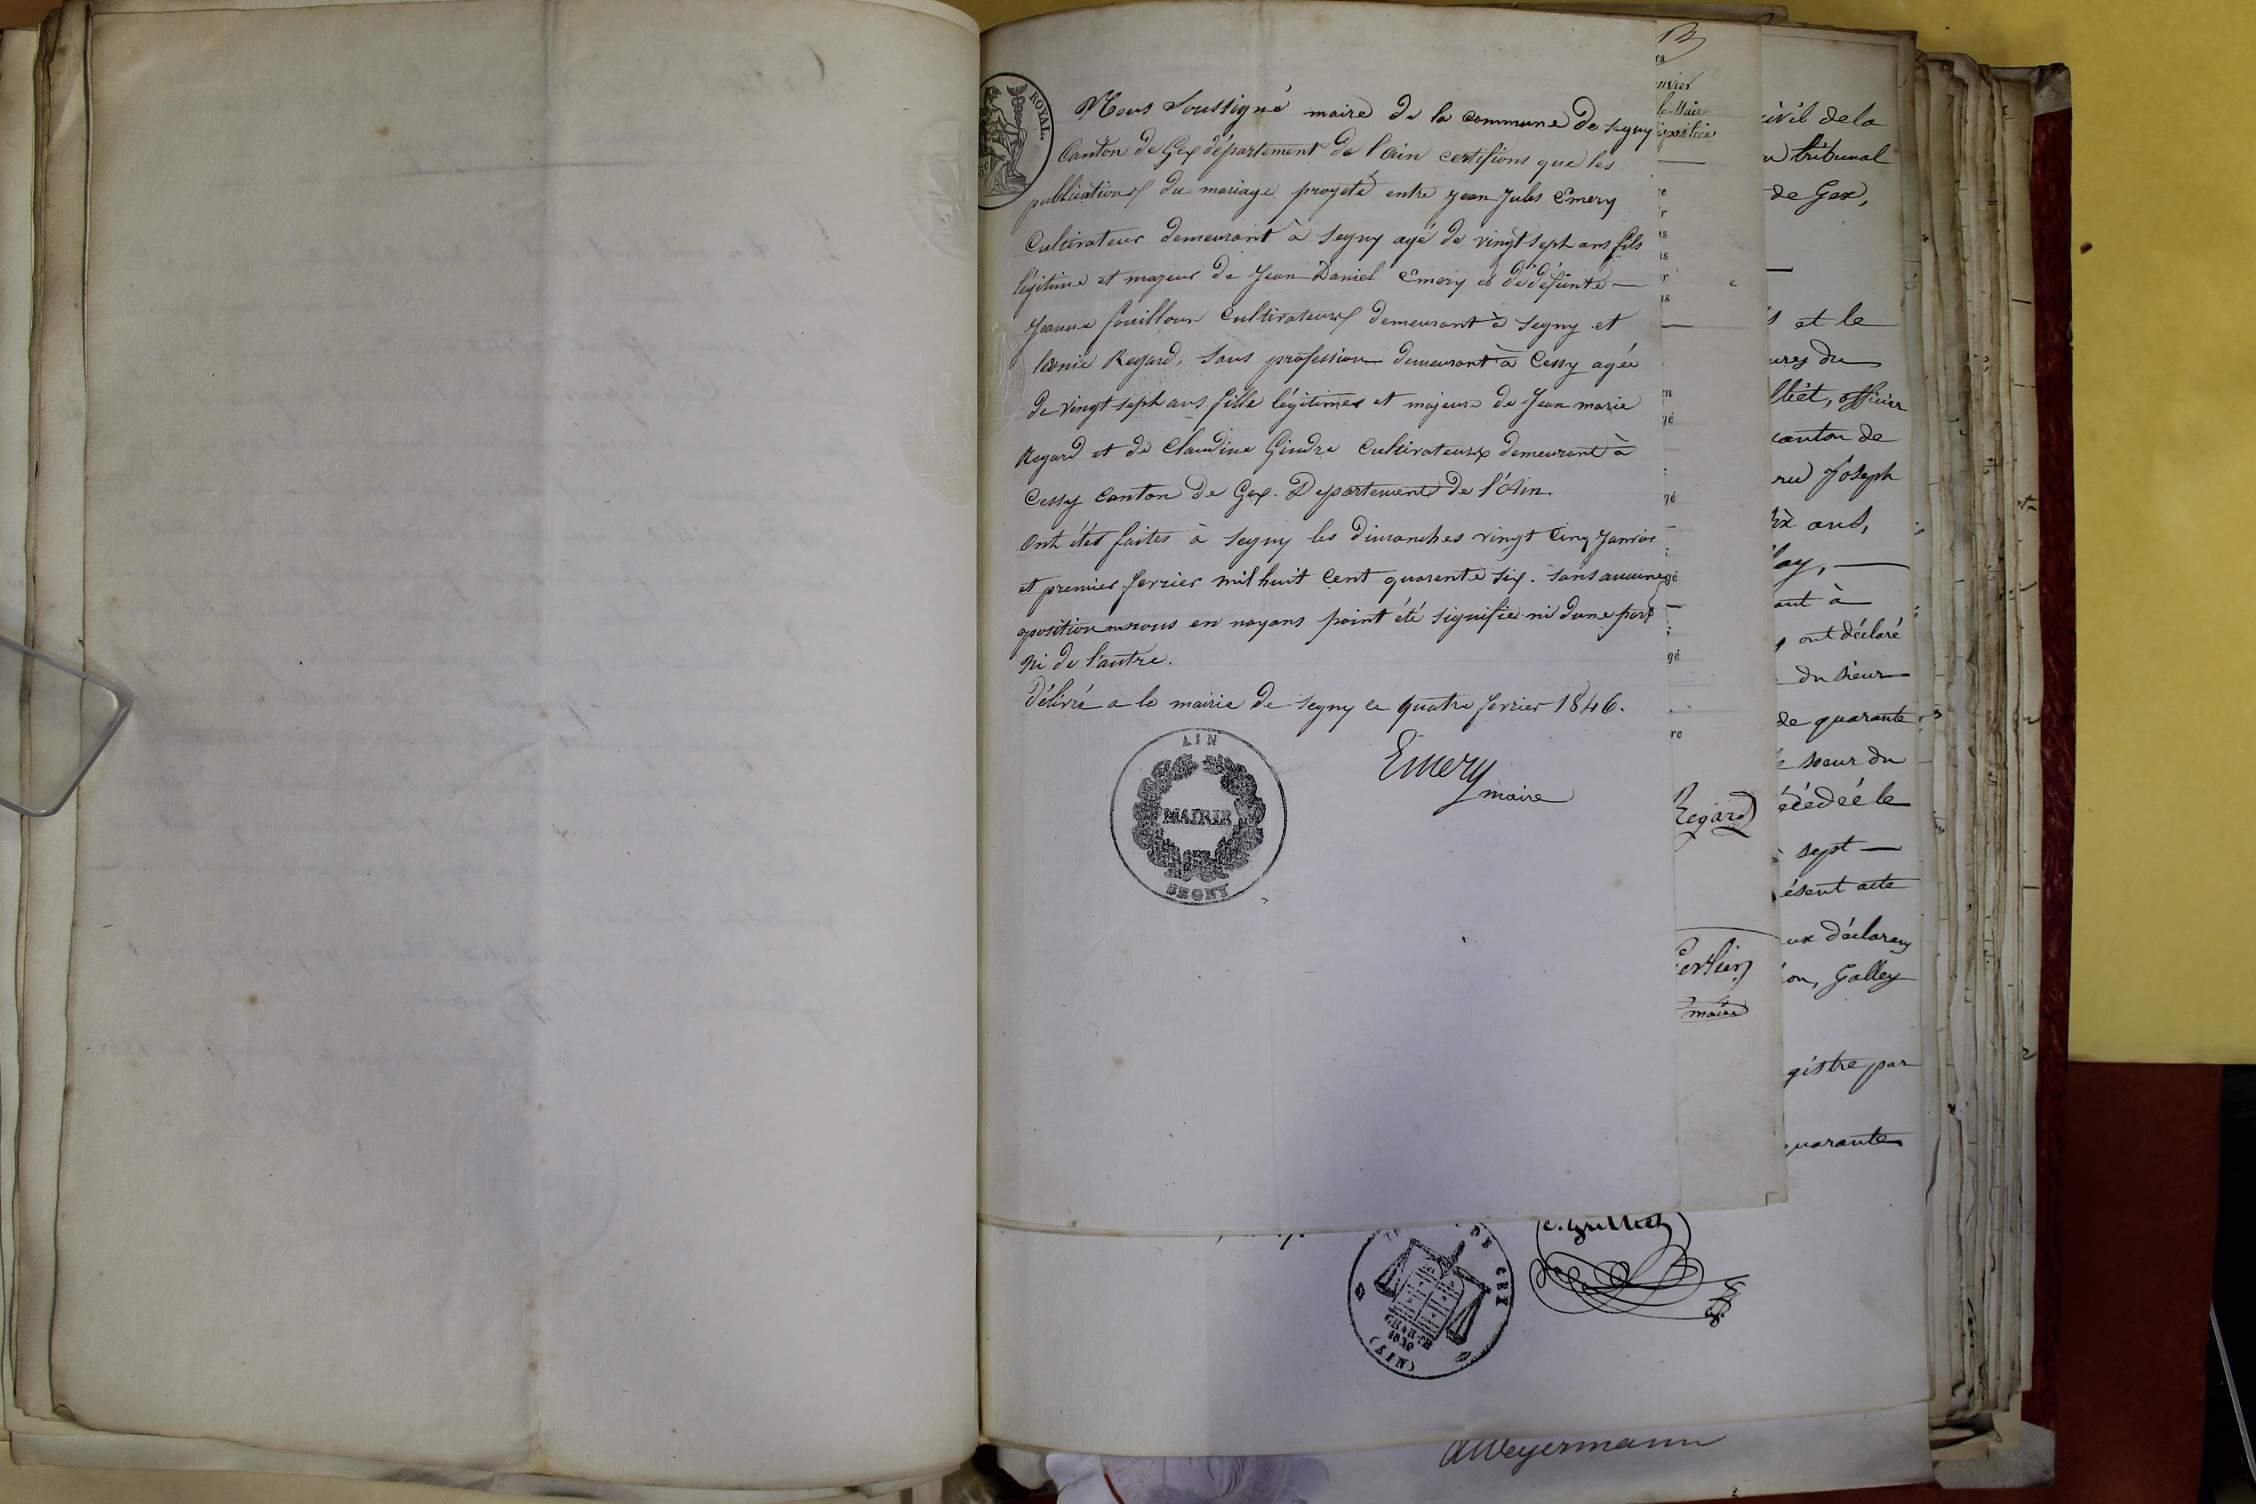 ROYAL.
Nous Soussigné maire de la commune de segny
Canton de Gex département de l'ain certifions que les
publications du mariage proyeté entre jean Jules Emery
Cultivateur demeurant à segny agé de vingt sept ans fils
légitime et mayeur de Jean Daniel Emery et de défunte —
Jeanne fouilloux Cultivateurs demeurant à segny et
léonie Regard, sans profession demeurant à Cessy agée
de vingt sept ans fille légitime et majeure de Jean marie
Regard et de Claudine Gindre Cultivateurs demeurant à
Cessy Canton de Gex. Departement de l'Ain.
Ont étés faites à segny les dimanches vingt Cinq Janvier
et premier fevrier mil huit Cent quarente six. sans aucune
oposition nous en nayans point été signifié ni dune part
Ni de l'autre.
Délivré a la mairie de segny le quatre fevrier 1846.
Emery
maire
AIN
MAIRIE
SEGNY
le Maire
Regard
maire
civil de la
tribunal
de Gex,
et le
du
officier
canton de
Joseph
ans,
à
ont déclaré
du sieur
de quarante
soeur du
le
sept —
acte
Galley
par
quarante
DE GEX
CHARTE
1830
(AIN)
AWeyermann